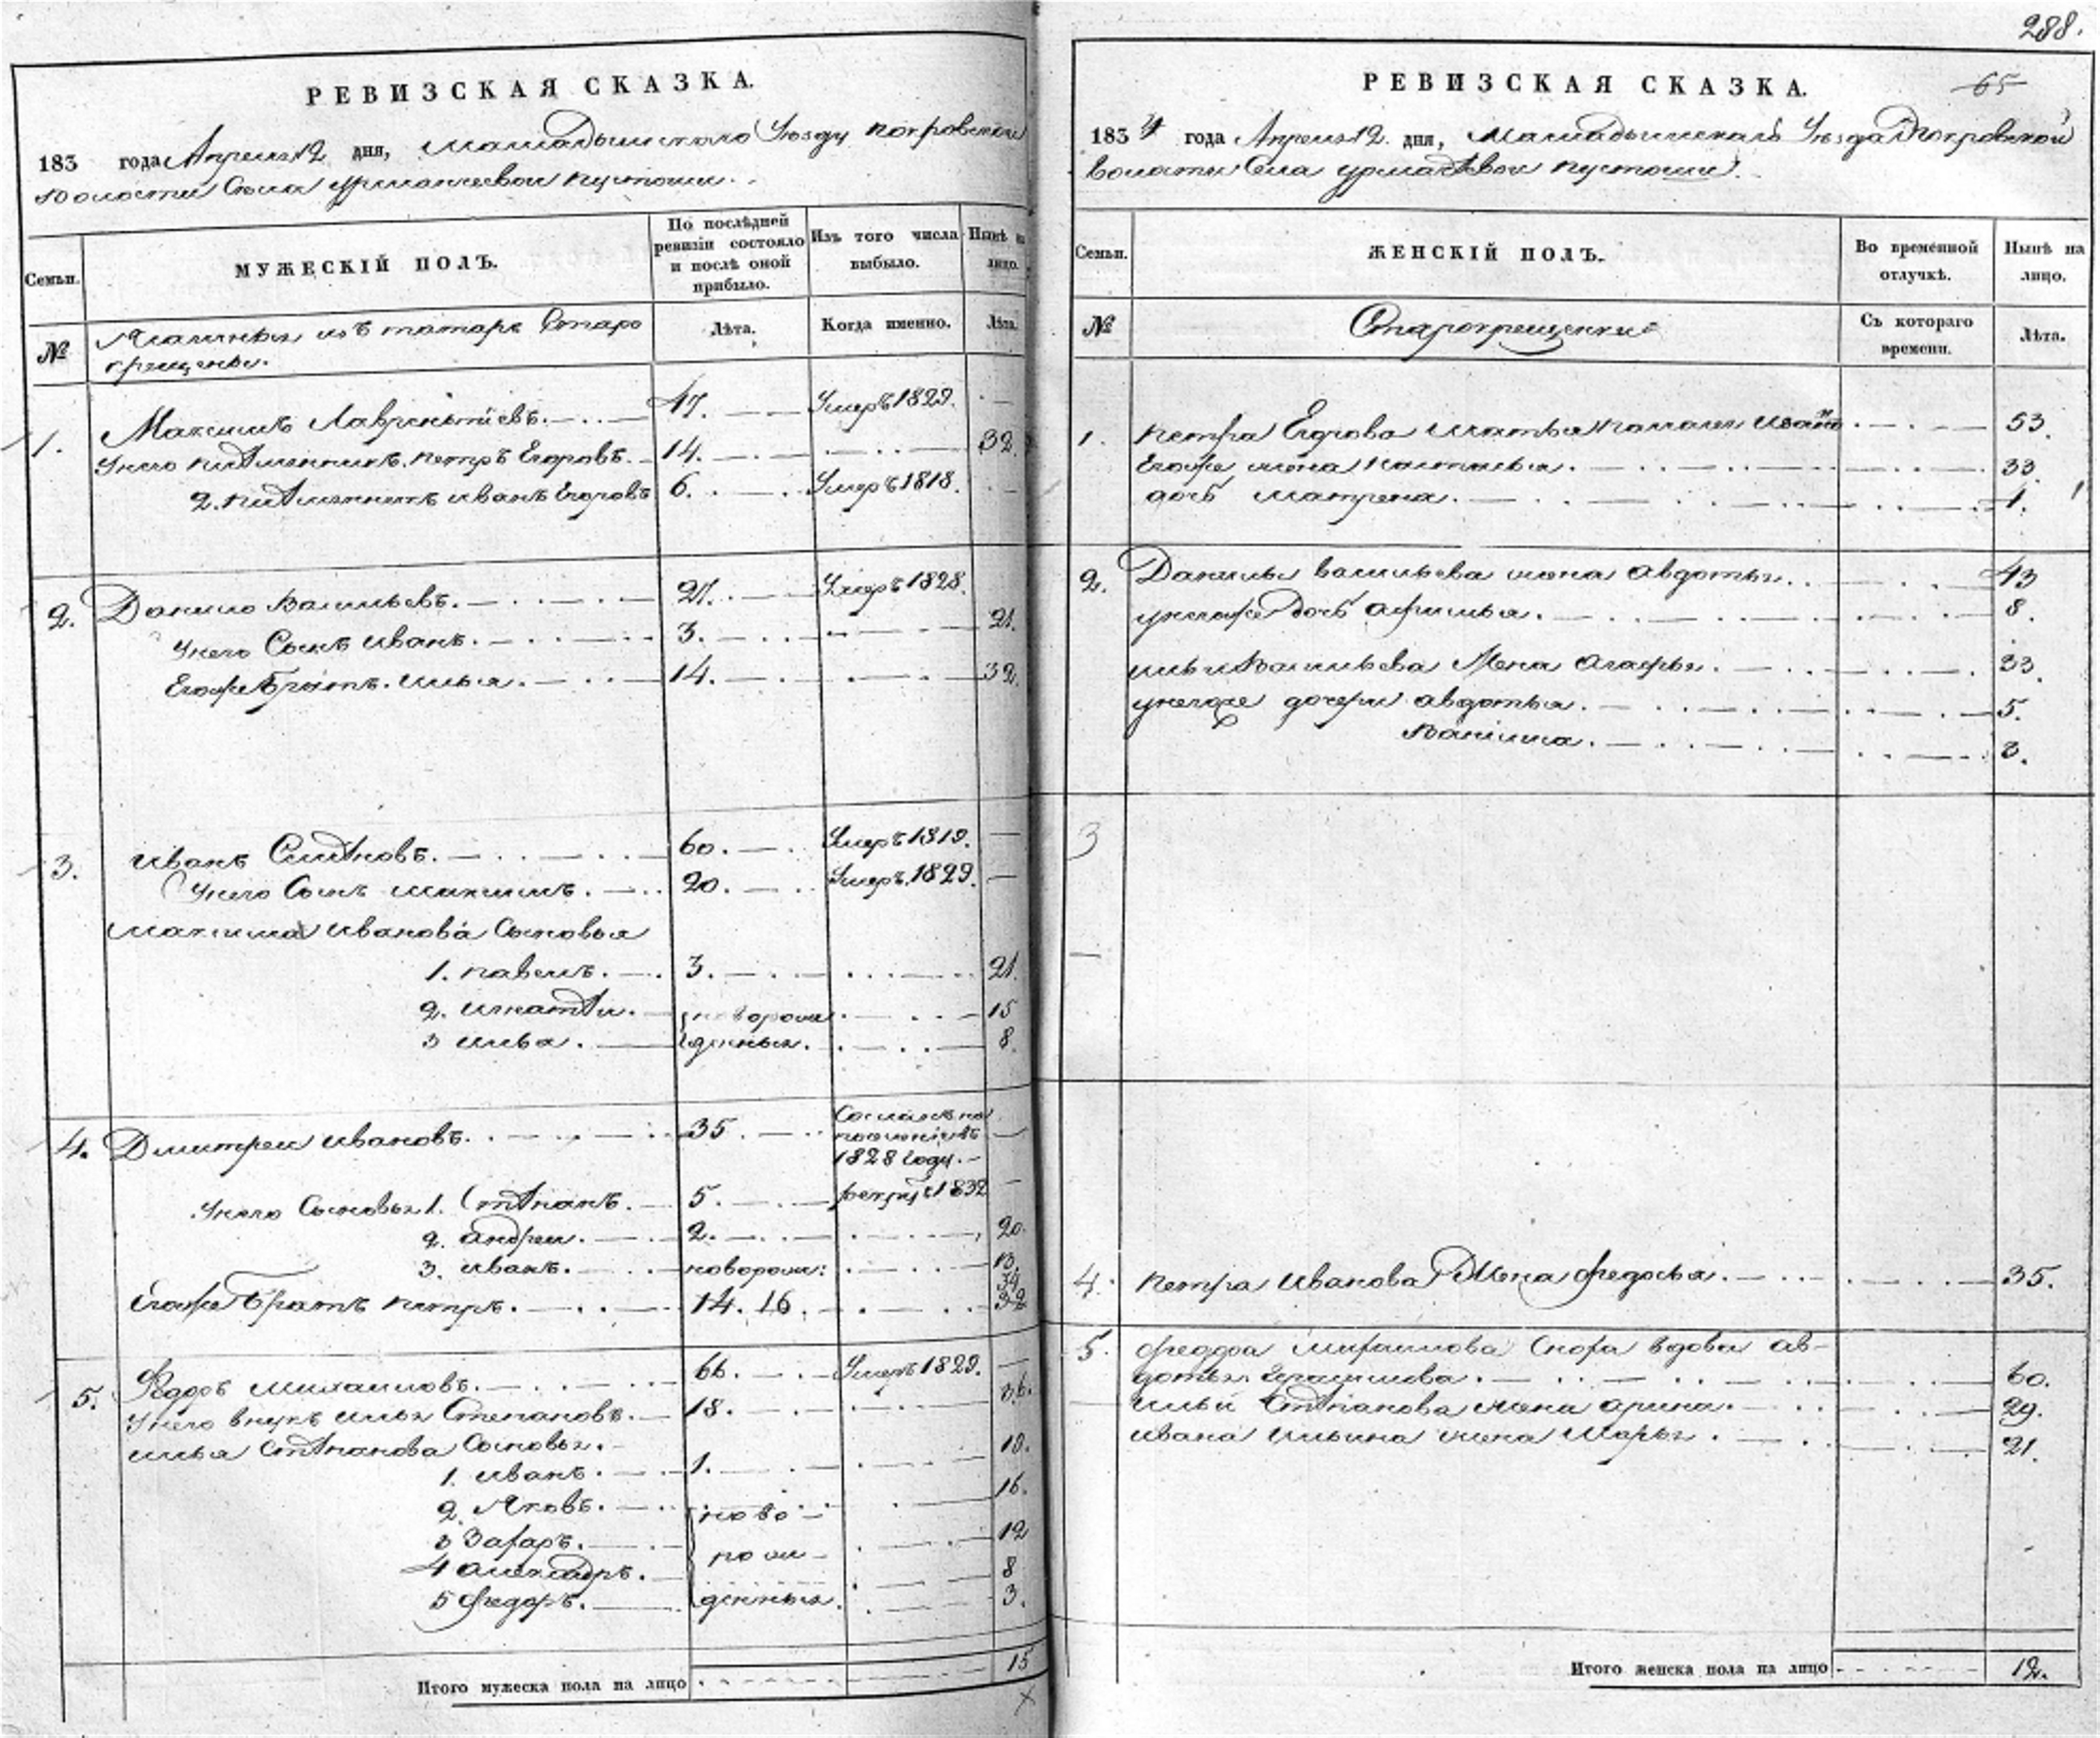 288.
РЕВИЗСКАЯ СКАЗКА.
183 года Апреля 12 дня, Мамадышскаго Уезду Покровской
волости Села Урманчевой пустоши.
Семьи.
МУЖЕСКІЙ ПОЛЪ.
По послѣдней ревизіи состояло и послѣ оной прибыло.
Изъ того числа выбыло.
Нынѣ на лицо.
№
изъ татаръ Старо
крещены.
Лѣта.
Когда именно.
Лѣта.
1. Максимъ Лаврентьевъ. 47. Умеръ 1829.
Унего племянникъ Петръ Егоровъ. 14. 32.
2. племянникъ иванъ Егоровъ 6. Умеръ 1818.
2. Данило Васильевъ. 27. Умеръ 1828.
Унего Сынъ иванъ. 3. 21.
Егоже Братъ илья. 14. 32.
3. иванъ 60. Умеръ 1819.
Унего Сынъ максимъ. 20. Умеръ 1829.
максима иванова Сыновья
1. павелъ. 3. 21.
2. игнатеи. новорож 15
3 илья. денныя. 8.
4. Дмитреи ивановъ. 35. Сосланъ на
поселеніе въ
1828 году.
Унего Сыновья 1. Степанъ. 5. рекрут 1832
2. андреи. 2. 20.
3. иванъ. новорож: 13.
34
Егоже Братъ петръ. 14. 16. 32
5. Федоръ михаиловъ. 66. Умеръ 1829.
Унего внукъ илья Степановъ. 18. 36.
илья Степанова Сыновья.
1. иванъ. 1. 19.
2. Яковъ. ново- 16.
3 Захаръ. 12
4 александръ. рож- 8
5 федоръ. денныя. 3.
Итого мужеска пола на лицо 15
РЕВИЗСКАЯ СКАЗКА.
65
1834 года Апреля 12. дня, Мамадышскаго Уезда Покровской
волости Села урманчевой пустоши.
Семьи.
ЖЕНСКІЙ ПОЛЪ.
Во временной отлучкѣ.
Нынѣ на лицо.
№
Старокрещенки
Съ котораго времени.
Лѣта.
1. петра Егорова мать иван 53.
Егоже жена 33
дочь матрена. 1.
2. Данилы васильева жена авдотья. 43
унегоже дочь афимья. 8.
ильи Васильева Жена агафья. 33.
унегоже дочери авдотья. 5.
3.
3
4. петра иванова Жена федосья. 35.
5. феддра михаилова Сноха вдова ав-
дотья 60.
ильи Степанова жена арина. 29.
ивана ильина жена марья. 21.
Итого женска пола на лицо 12.